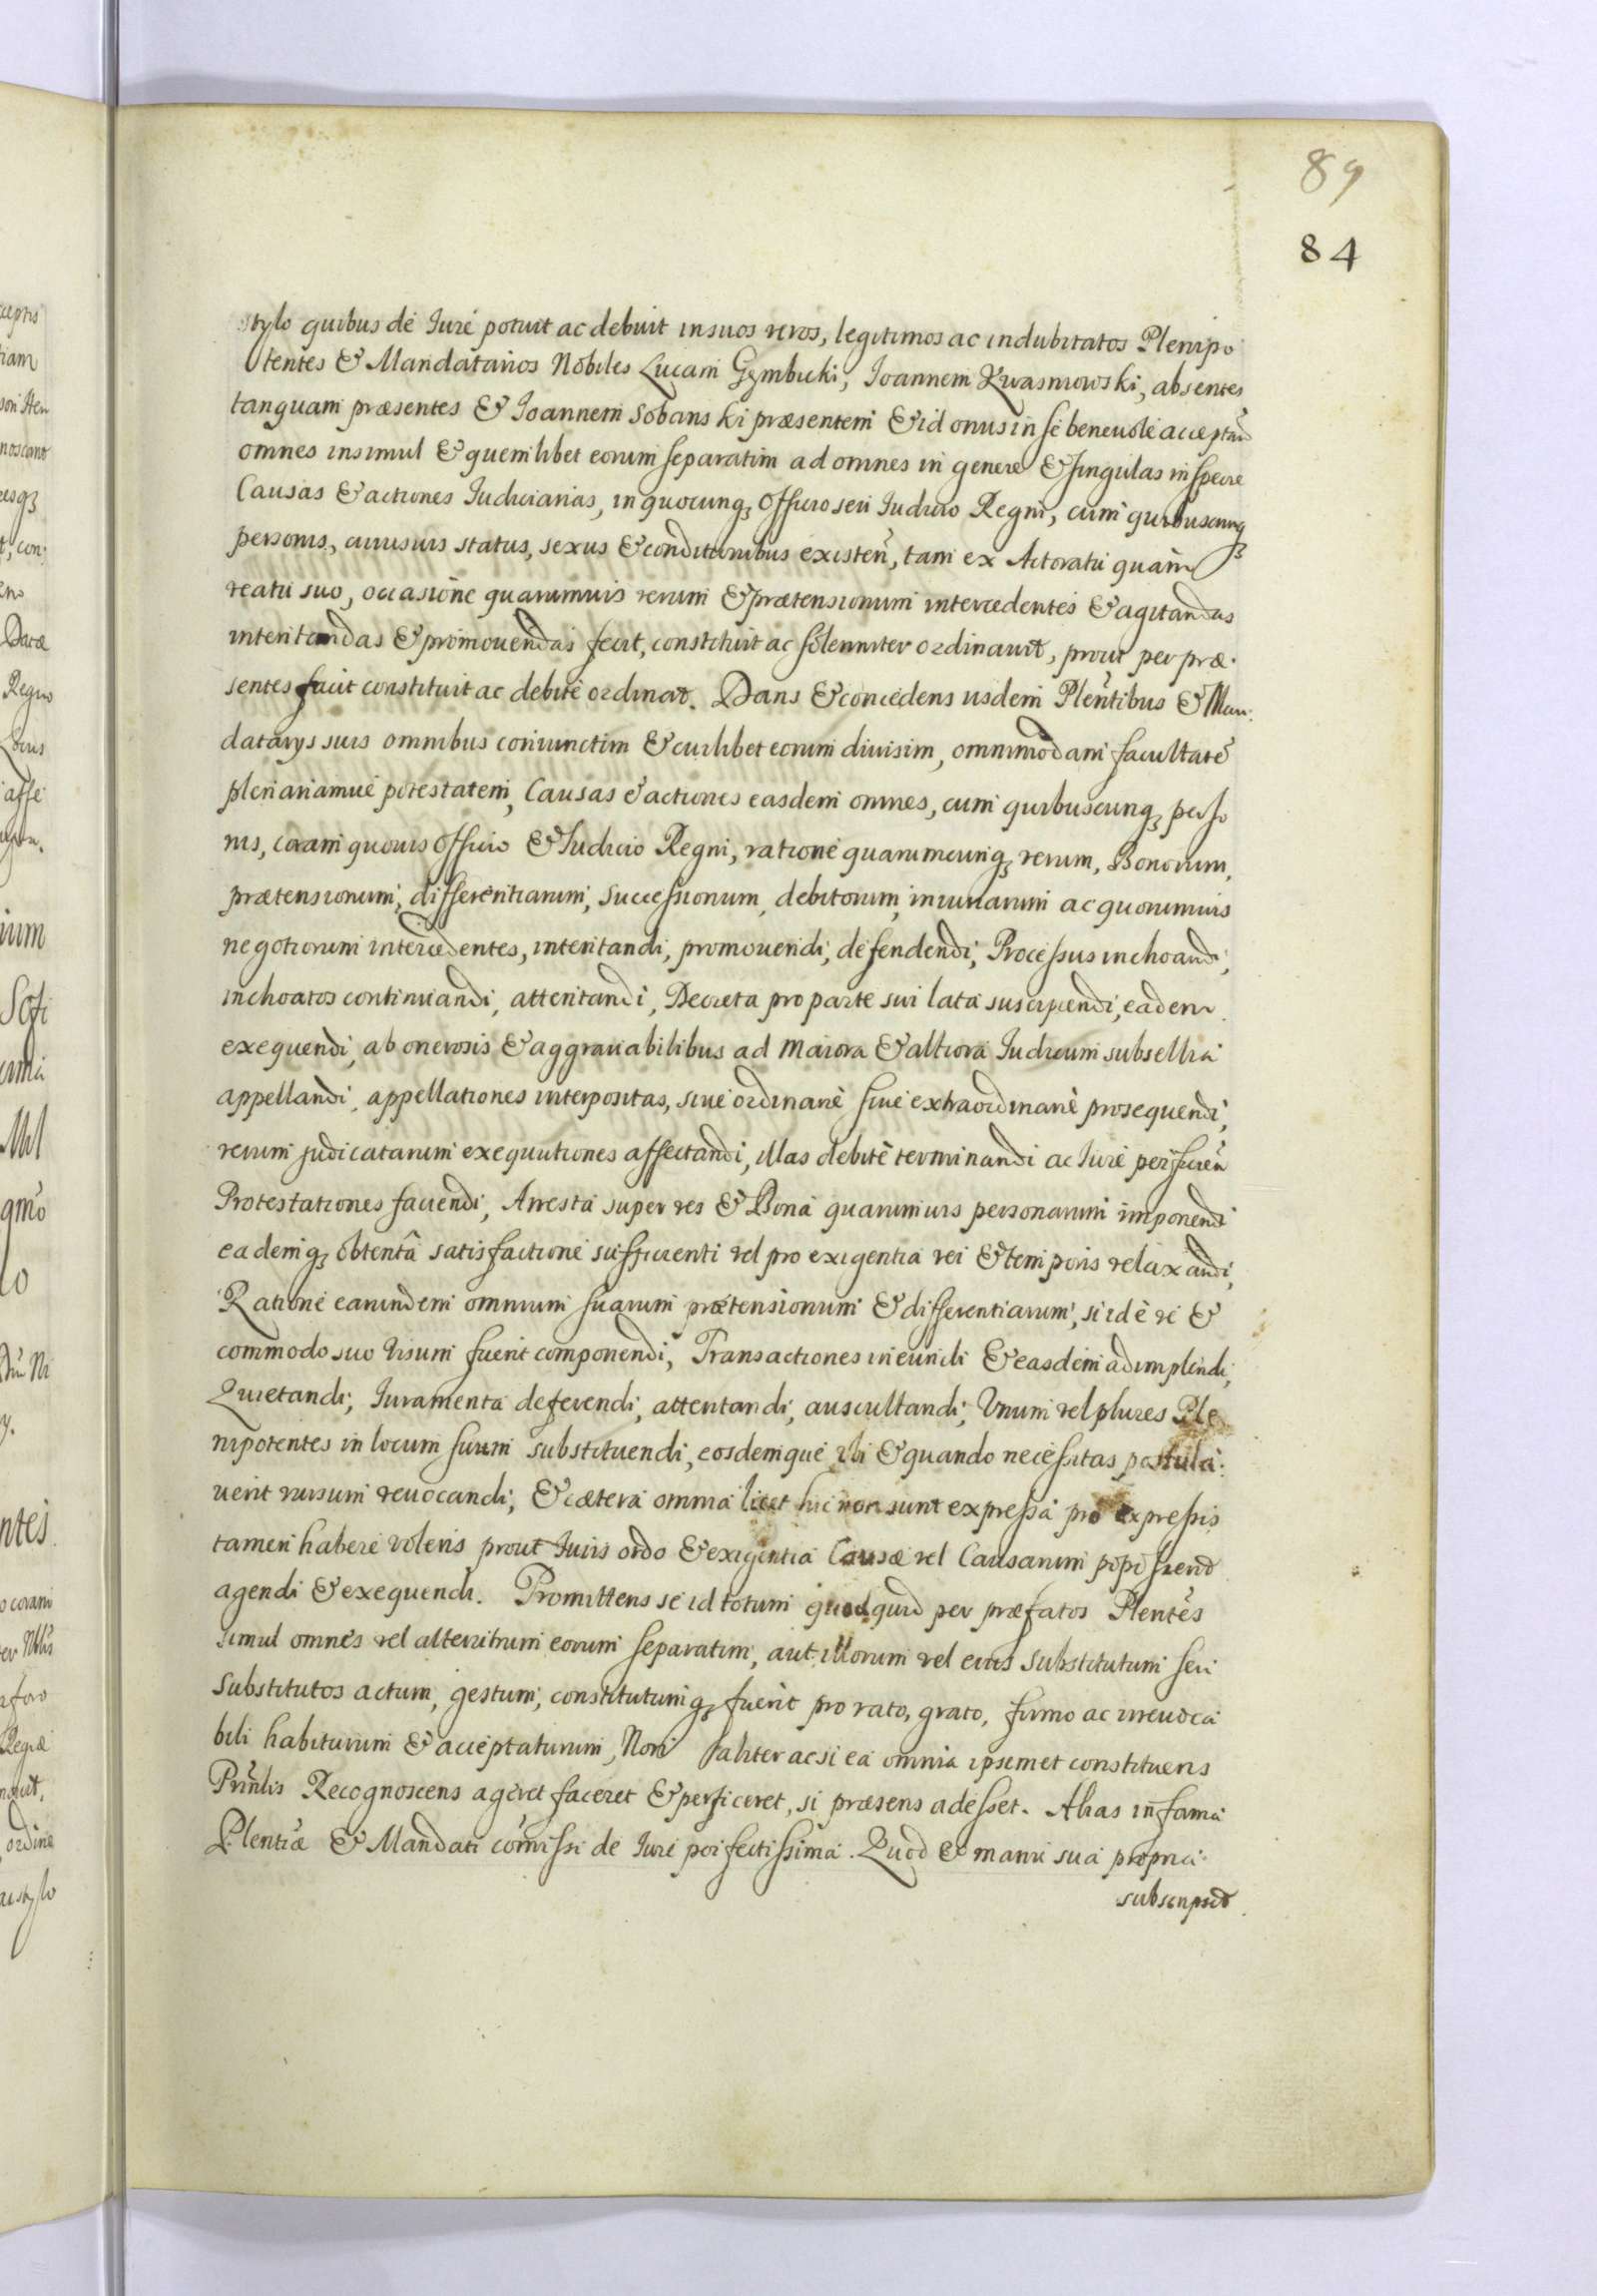 89
84
stylo quibus de Iure potuit ac debuit in suos veros, legitimos ac indubitatos Plenipo
tentes & Mandatarios Nobiles Lucam Gembicki, Ioannem Kwasniowski, absentes
tanquam præsentes & Ioannem Sobanski præsentem & id onus in se beneuole acceptan̄
omnes insimul & quemlibet eorum separatim ad omnes in genere & singulas in specie
Causas & actiones Iudiciarias, in quocunqꝫ Officio seu Iudicio Regni, cum quibuscunqꝫ
personis, cuiusuis status, sexus & conditionibus existen̄, tam ex Actoratu quàm
reatu suo, occasione quarumuis rerum & prætensionum intercedentes & agitandas
intentandas & promouendas fecit, constituit ac solenniter ordinauit, prout per præ-
sentes facit constituit ac debite ordinat. Dans & concedens iisdem Pleñtibus & Man-
datarys suis omnibus coniunctim & cuilibet eorum diuisim, omnimodam facultatē
plenariamue potestatem, Causas & actiones easdem omnes, cum quibuscunqꝫ perso
nis, coram quouis Officio & Iudicio Regni, ratione quarumcunqꝫ rerum, Bonorum,
prætensionum, differentiarum, successionum, debitorum, iniuriarum ac quorumuis
negotiorum intercedentes, intentandi, promouendi, defendendi, Processus inchoandi,
inchoatos continuandi, attentandi, Decreta pro parte sui lata suscipiendi, eadem
exequendi, ab onerosis & aggrauabilibus ad Maiora & altiora Iudicum subsellia
appellandi, appellationes interpositas, siue ordinariè siue extraordinariè prosequendi,
rerum judicatarum exequutiones affectandi, illas debitè terminandi ac Iure perficien̄
Protestationes faciendi, Arresta super res & Bona quarumuis personarum imponendi
eademqꝫ obtentâ satisfactione sufficienti vel pro exigentia rei & temporis relaxandi,
Ratione earundem omnium suarum prætensionum & differentiarum, si id è re &
commodo suo visum fuerit componendi, Transactiones ineundi & easdem adimplendi,
Quietandi, Iuramenta deferendi, attentandi, auscultandi, Vnum vel plures Ple
nipotentes in locum suum substituendi, eosdemque ubi & quando necessitas postula-
uerit rursum reuocandi, & cætera omnia licet hic non sunt expressa pro expressis
tamen habere volens prout Iuris ordo & exigentia Causæ vel Causarum poposcerit
agendi & exequendi. Promittens se id totum quodquid per præfatos Plentēs
simul omnes vel alterutrum eorum separatim, aut illorum vel eius substitutum seu
substitutos actum, gestum, constitutumqꝫ fuerit pro rato, grato, firmo ac irreuoca
bili habiturum & accéptaturum, Non aliter acsi ea omnia ipsemet constituens
Prin̄lis Recognoscens ageret faceret & perficeret, si præsens adesset. Alias in forma
Plentiæ & Mandati com̄issi de Iure perfectissima. Quod & manu sua propria
subscripsit.